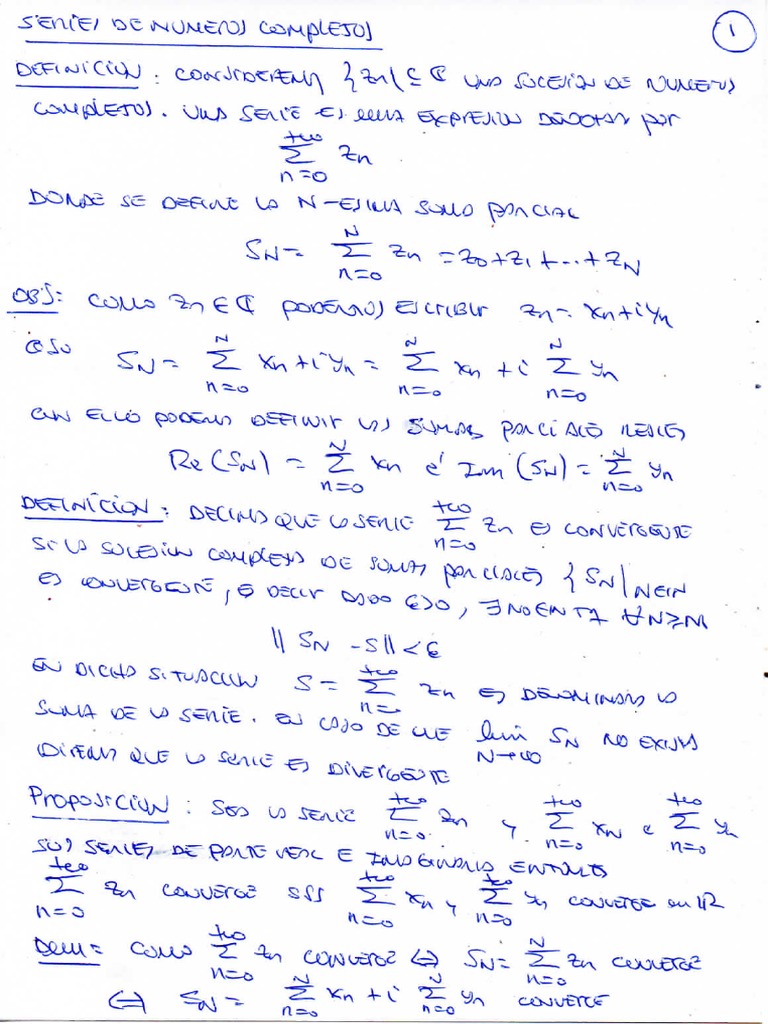 SERIES DE NUMEROS COMPLEJOS 1
DEFINICION: CONSIDEREMOS {Zn} ⊆ ℂ UNA SUCESIÓN DE NUMEROS
COMPLEJOS. UNA SERIE ES UNA EXPRESIÓN DENOTADA por
∑_{n=0}^{+∞} Zn
DONDE SE DEFINE LA N-ESIMA SUMA PARCIAL
S_N = ∑_{n=0}^{N} Zn = Z0+Z1+...+ZN
OBS: COMO Zn ∈ ℂ PODEMOS ESCRIBIR Zn = xn+iyn
ASÍ S_N = ∑_{n=0}^{N} xn+iyn = ∑_{n=0}^{N} xn + i ∑_{n=0}^{N} yn
CON ELLO PODEMOS DEFINIR LAS SUMAS PARCIALES REALES
Re(S_N) = ∑_{n=0}^{N} xn e Im(S_N) = ∑_{n=0}^{N} yn
DEFINICION: DECIMOS QUE LA SERIE ∑_{n=0}^{+∞} Zn ES CONVERGENTE
SI LA SUCESIÓN COMPLEJA DE SUMAS PARCIALES {S_N}_{N∈ℕ}
ES CONVERGENTE, ES DECIR DADO ε>0, ∃ N0∈ℕ TQ ∀N≥N0
|| S_N - S || < ε
EN DICHA SITUACION S = ∑_{n=0}^{+∞} Zn ES DENOMINADA LA
SUMA DE LA SERIE. EN CASO DE QUE lim_{N→∞} S_N NO EXISTA
DIREMOS QUE LA SERIE ES DIVERGENTE
PROPOSICION: SEA LA SERIE ∑_{n=0}^{+∞} Zn y ∑_{n=0}^{+∞} xn e ∑_{n=0}^{+∞} yn
SUS SERIES DE PARTE REAL E IMAGINARIA ENTONCES
∑_{n=0}^{+∞} Zn CONVERGE SSS ∑_{n=0}^{+∞} xn y ∑_{n=0}^{+∞} yn CONVERGE en ℝ
Dem: COMO ∑_{n=0}^{+∞} Zn CONVERGE ⇔ S_N = ∑_{n=0}^{N} Zn CONVERGE
⇔ S_N = ∑_{n=0}^{N} xn + i ∑_{n=0}^{N} yn CONVERGE